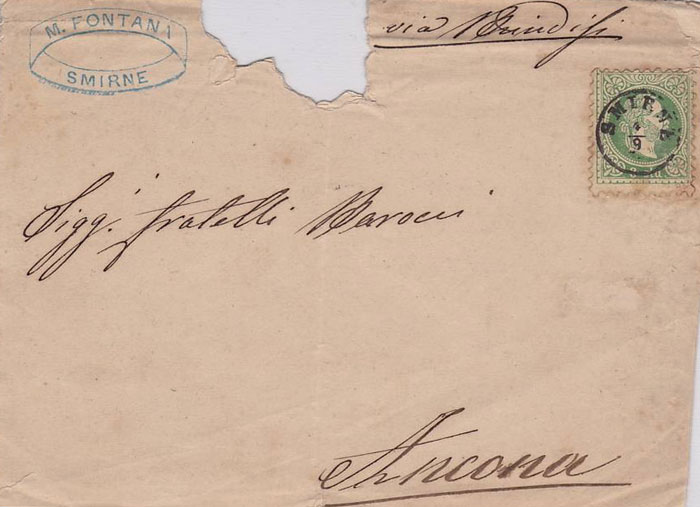 M. FONTANI
SMIRNE
via Brindisi
SMIRNE
4
9
Sigg.i fratelli Barocci
Ancona